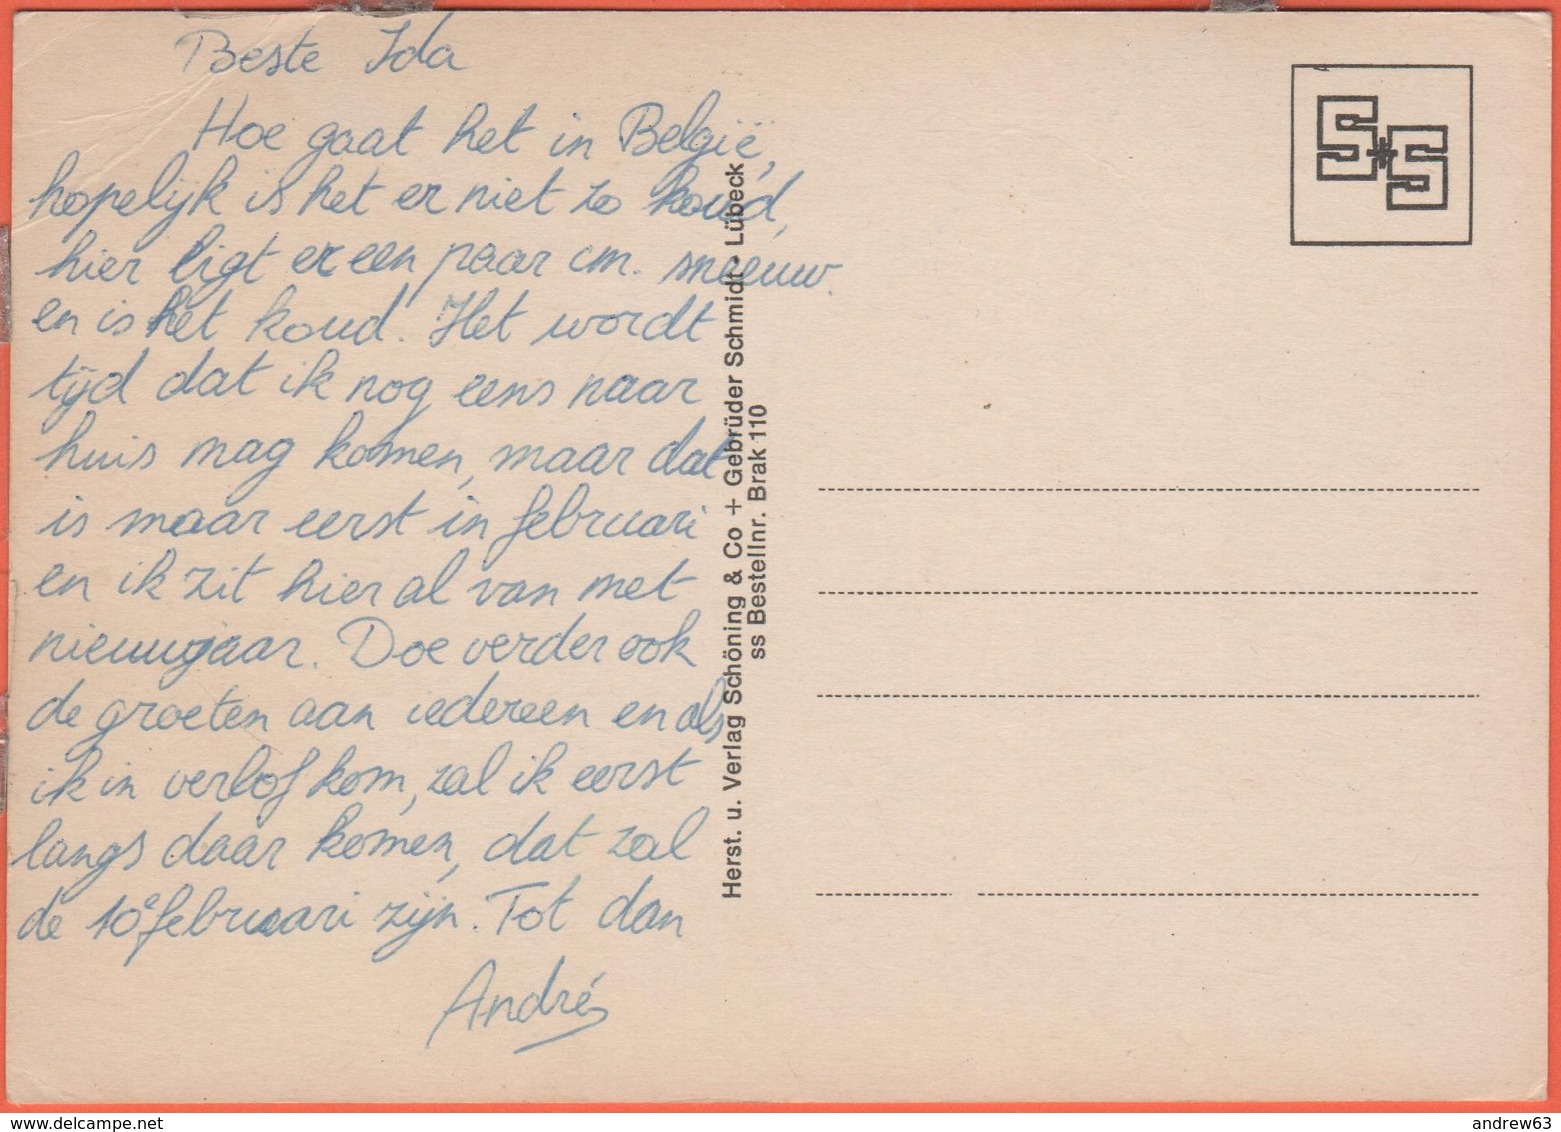 Beste Ida
Hoe gaat het in België,
hopelijk is het er niet zo koud,
hier ligt er een paar cm. sneeuw.
en is het koud. Het wordt
tijd dat ik nog eens naar
huis mag komen, maar dat
is maar eerst in februari
en ik zit hier al van met
nieuwjaar. Doe verder ook
de groeten aan iedereen en als
ik in verlof kom, zal ik eerst
langs daar komen, dat zal
de 10e februari zijn. Tot dan
André
Herst. u. Verlag Schöning & Co + Gebrüder Schmidt - Lübeck
ss Bestellnr. Brak 110
S*S
andrew63